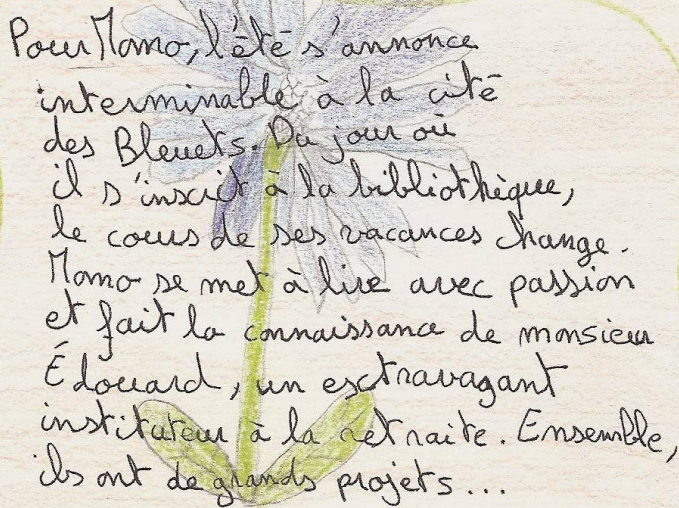 Pour Momo, l'été s'annonce
interminable à la cité
des Bleuets. Du jour où
il s'inscrit à la bibliothèque,
le cours de ses vacances change.
Momo se met à lire avec passion
et fait la connaissance de monsieur
Édouard, un extravagant
instituteur à la retraite. Ensemble,
ils ont de grands projets...